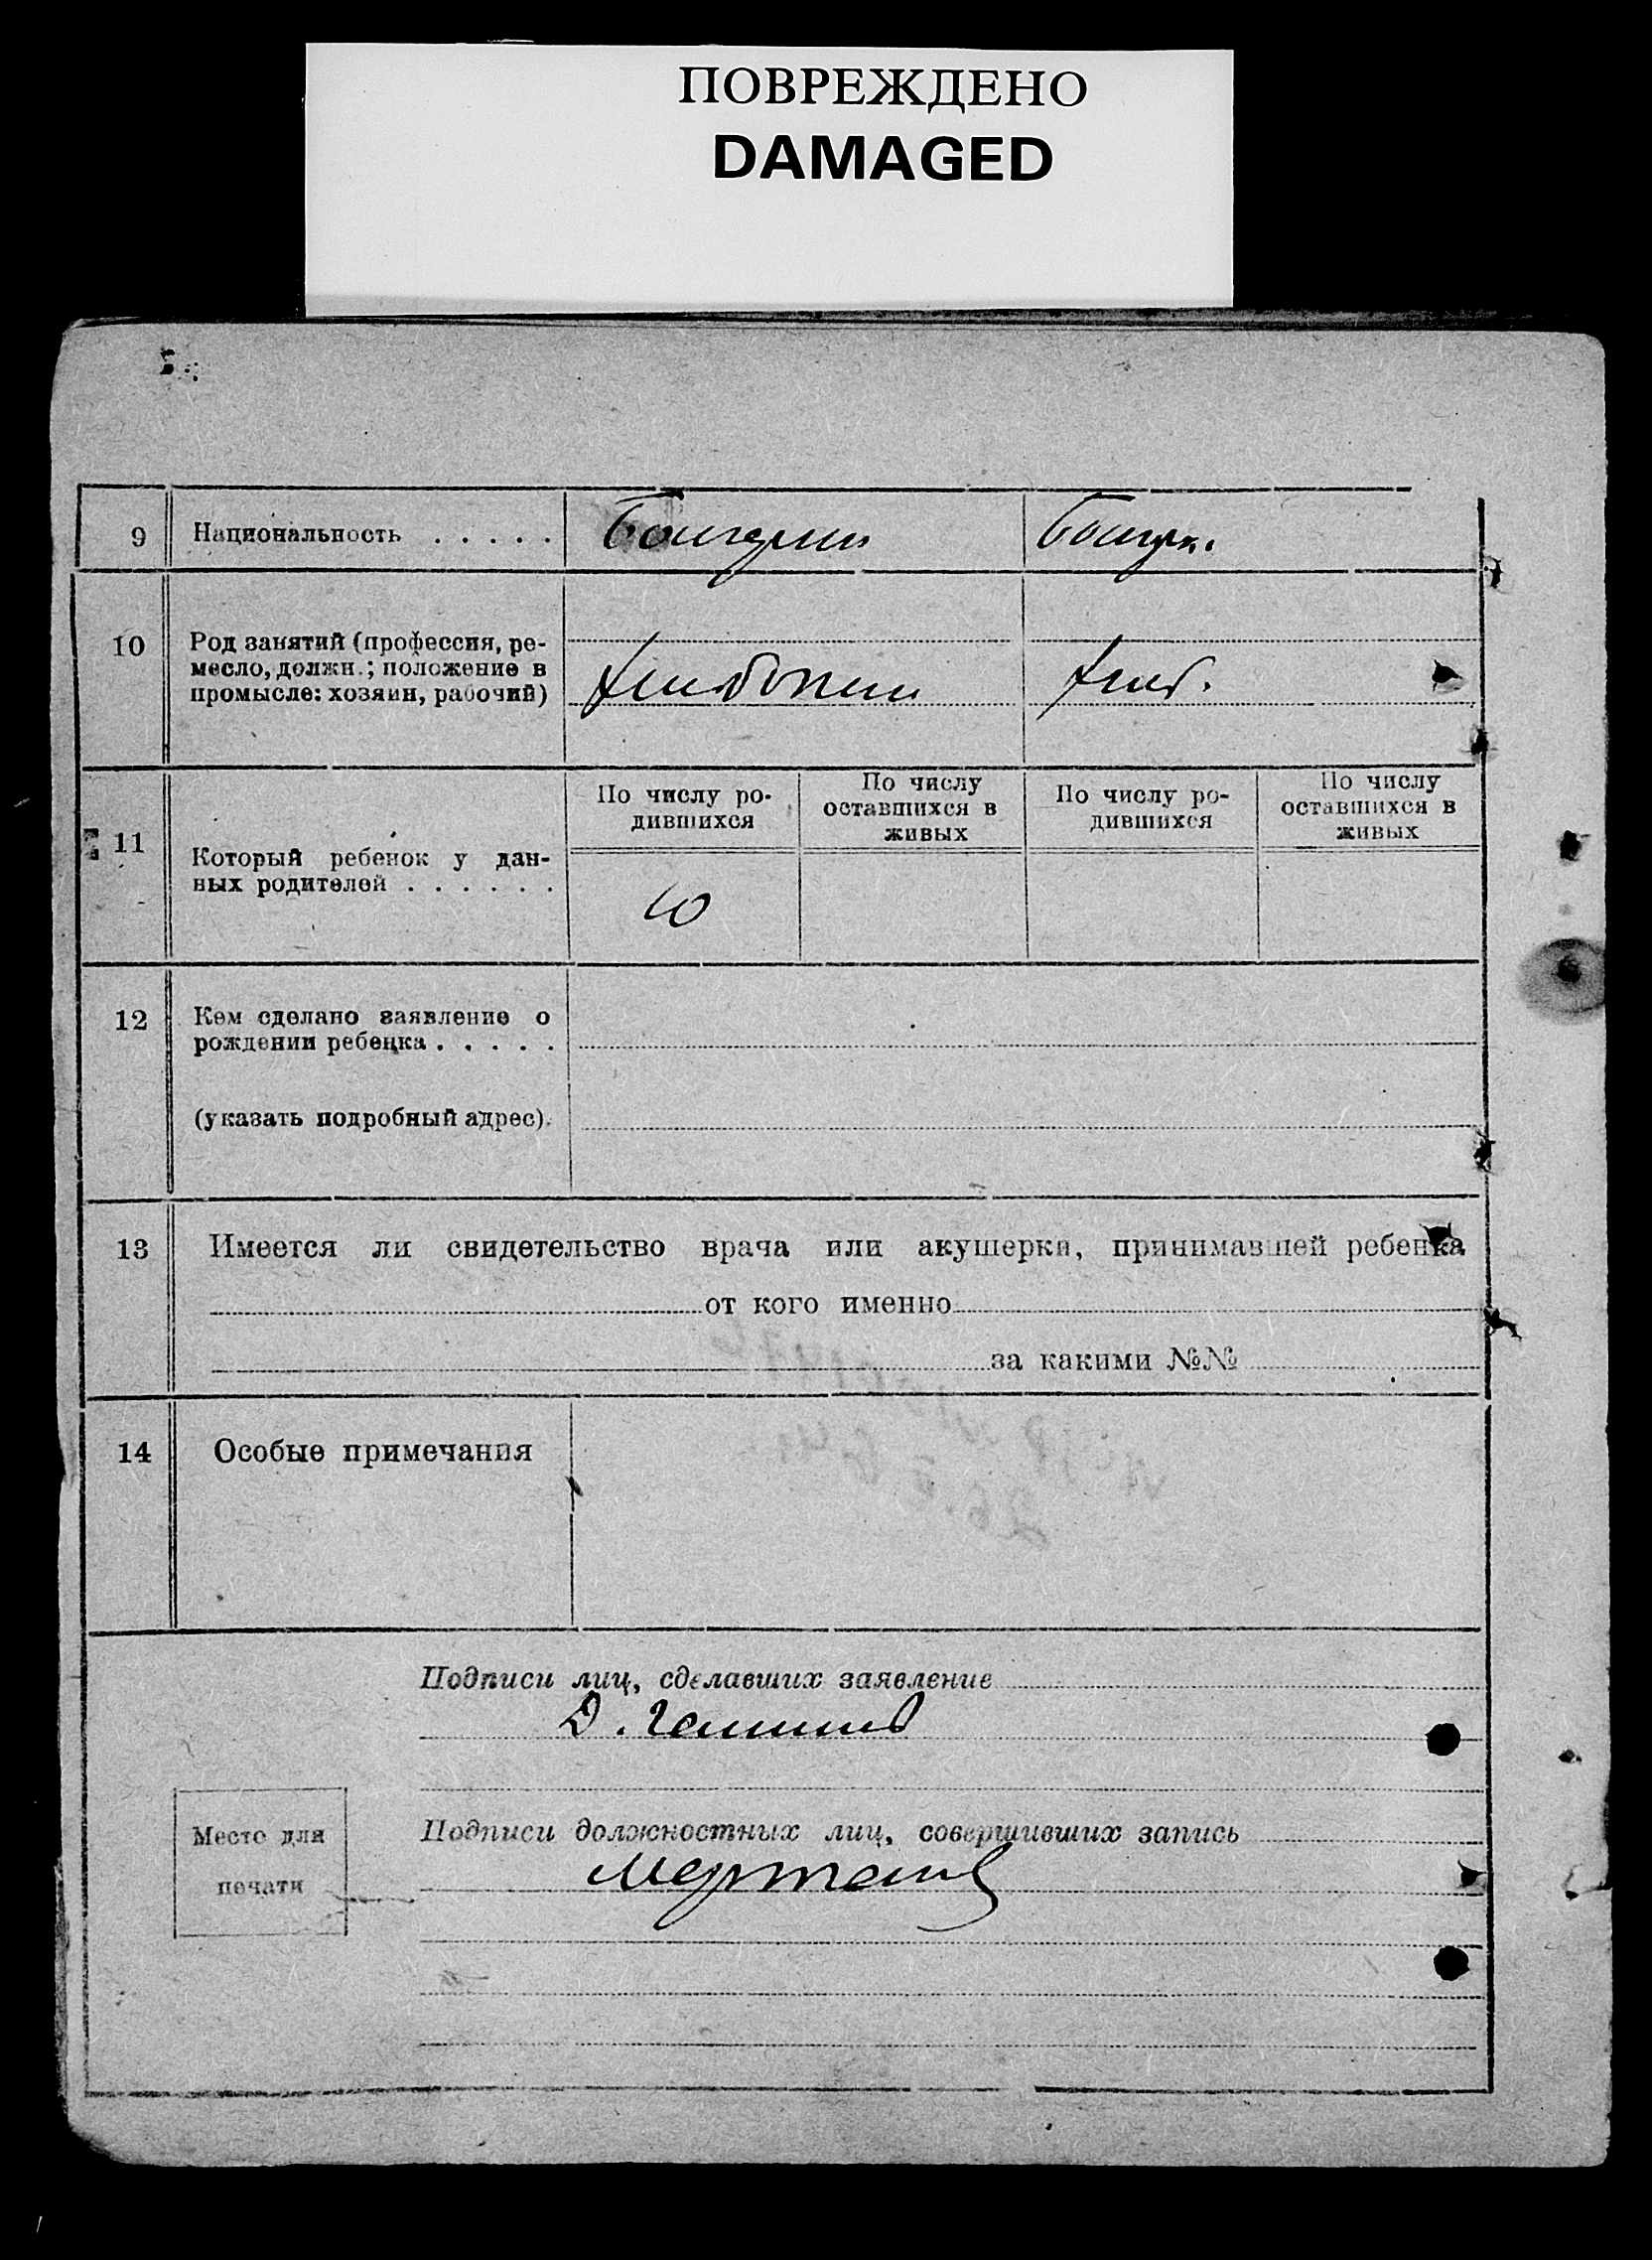 ПОВРЕЖДЕНО
DAMAGED
9 Национальность . . . . .
10 Род занятий (профессия, ре-
месло, должн.; положение в
промысле: хозяин, рабочий)
хлеб.
11 Который ребенок у дан-
ных родителей . . . . . .
По числу ро-
дившихся
По числу
оставшихся в
живых
По числу ро-
дившихся
По числу
оставшихся в
живых
10
12 Кем сделано заявление о
рождении ребенка . . . . .
(указать подробный адрес).
13 Имеется ли свидетельство врача или акушерки, принимавшей ребенка
от кого именно
за какими №№
14 Особые примечания
Подписи лиц, сделавших заявление
Д.
Место для
печати
Подписи должностных лиц, совершивших запись